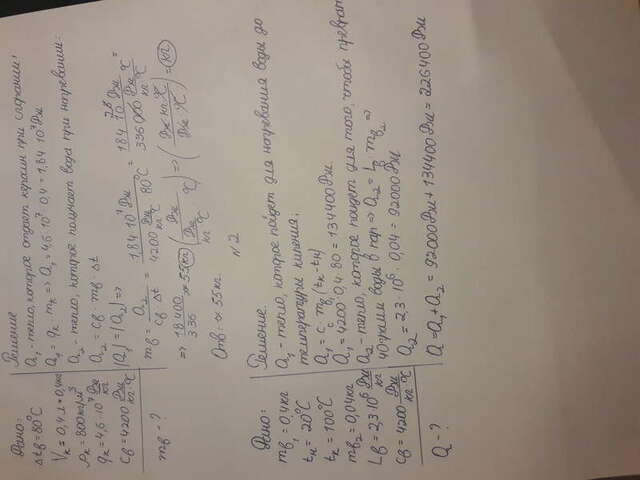 Дано:
Δtв=80°C
Vк=0,4л=0,4кг
ρк=800кг/м³
qк=4,6·10⁷ Дж/кг
cв=4200 Дж/кг·°C
mв-?
Решение
Q₁-тепло, которое отдает керосин при сгорании:
Q₁=qк mк=>Q₁=4,6·10⁷·0,4=1,84·10⁷Дж
Q₂-тепло, которое получает вода при нагревании:
Q₂=cв mв Δt
|Q₁|=|Q₂|=>
mв=Q₂/cв Δt=1,84·10⁷/4200 Дж/кг°C 80°C=
=>18400/336≈55(кг)
Отв:≈55кг.
№2
Дано:
mв₁=0,4кг
tн=20°C
tк=100°C
mв₂=0,04кг
Lв=2,3·10⁶ Дж/кг
cв=4200 Дж/кг·°C
Q-?
Решение.
Q₁-тепло, которое пойдет для нагревания воды до
температуры кипения;
Q₁=cв mв₁(tк-tн)
Q₁=4200·0,4·80=134400Дж
Q₂-тепло, которое пойдет для того, чтобы преврат
40грамм воды в пар=>Q₂=Lв mв₂=>
Q₂=2,3·10⁶·0,04=92000Дж
Q=Q₁+Q₂=92000Дж+134400Дж=226400Дж